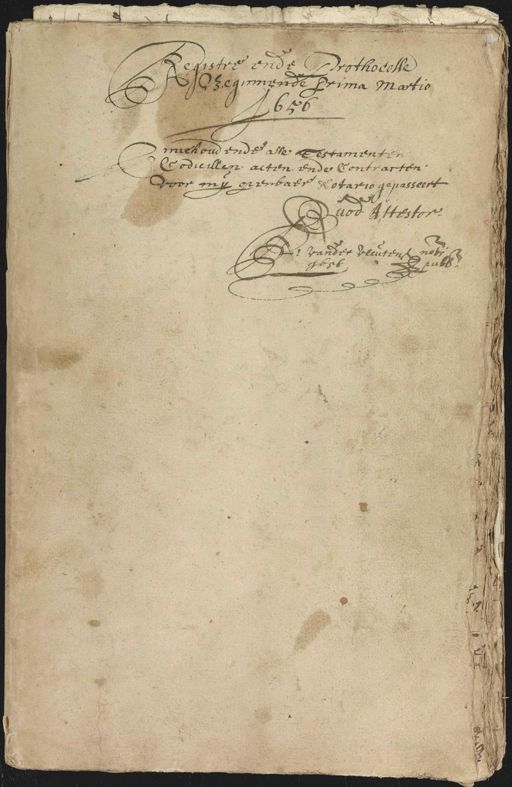 Registre ende Prothocolle
Beginnende Prima Martio
1656
inehoudende alle Testamenten
Codicillen acten ende Contracten
voor mÿ openbaer Notario gepasseert
Quod Attestor
vander notr
1656 publ